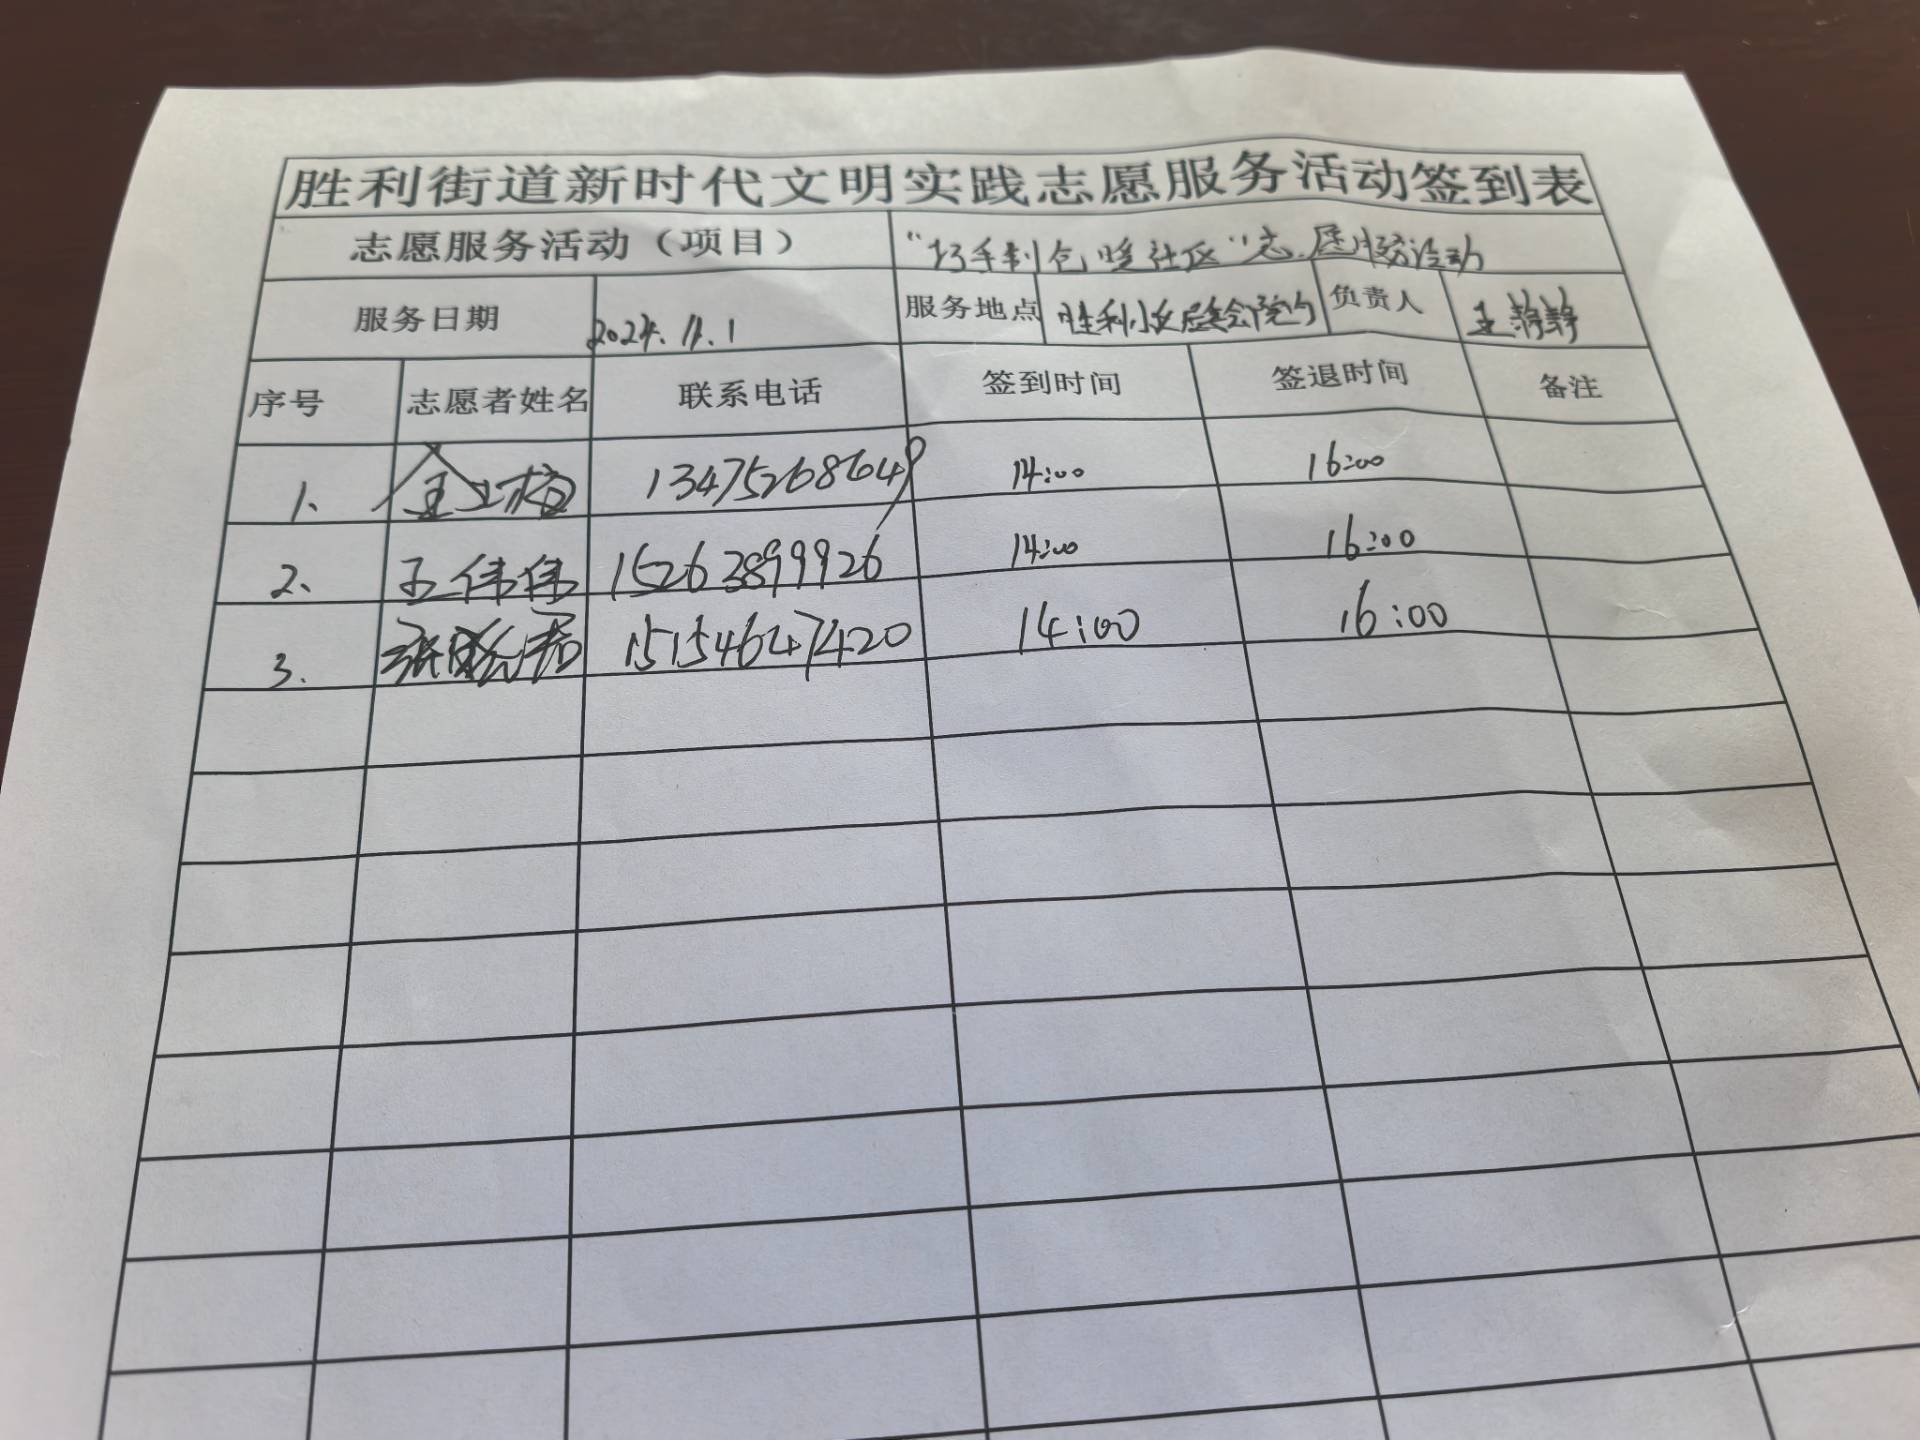 胜利街道新时代文明实践志愿服务活动签到表
志愿服务活动（项目） “巧手制包 暖社区”志愿服务活动
服务日期 2024.11.1 服务地点 胜利小区居委会院内 负责人 王静静
序号 志愿者姓名 联系电话 签到时间 签退时间 备注
1、 13475268649 14:00 16:00
2、 王伟伟 15263899926 14:00 16:00
3. 15154647420 14:00 16:00